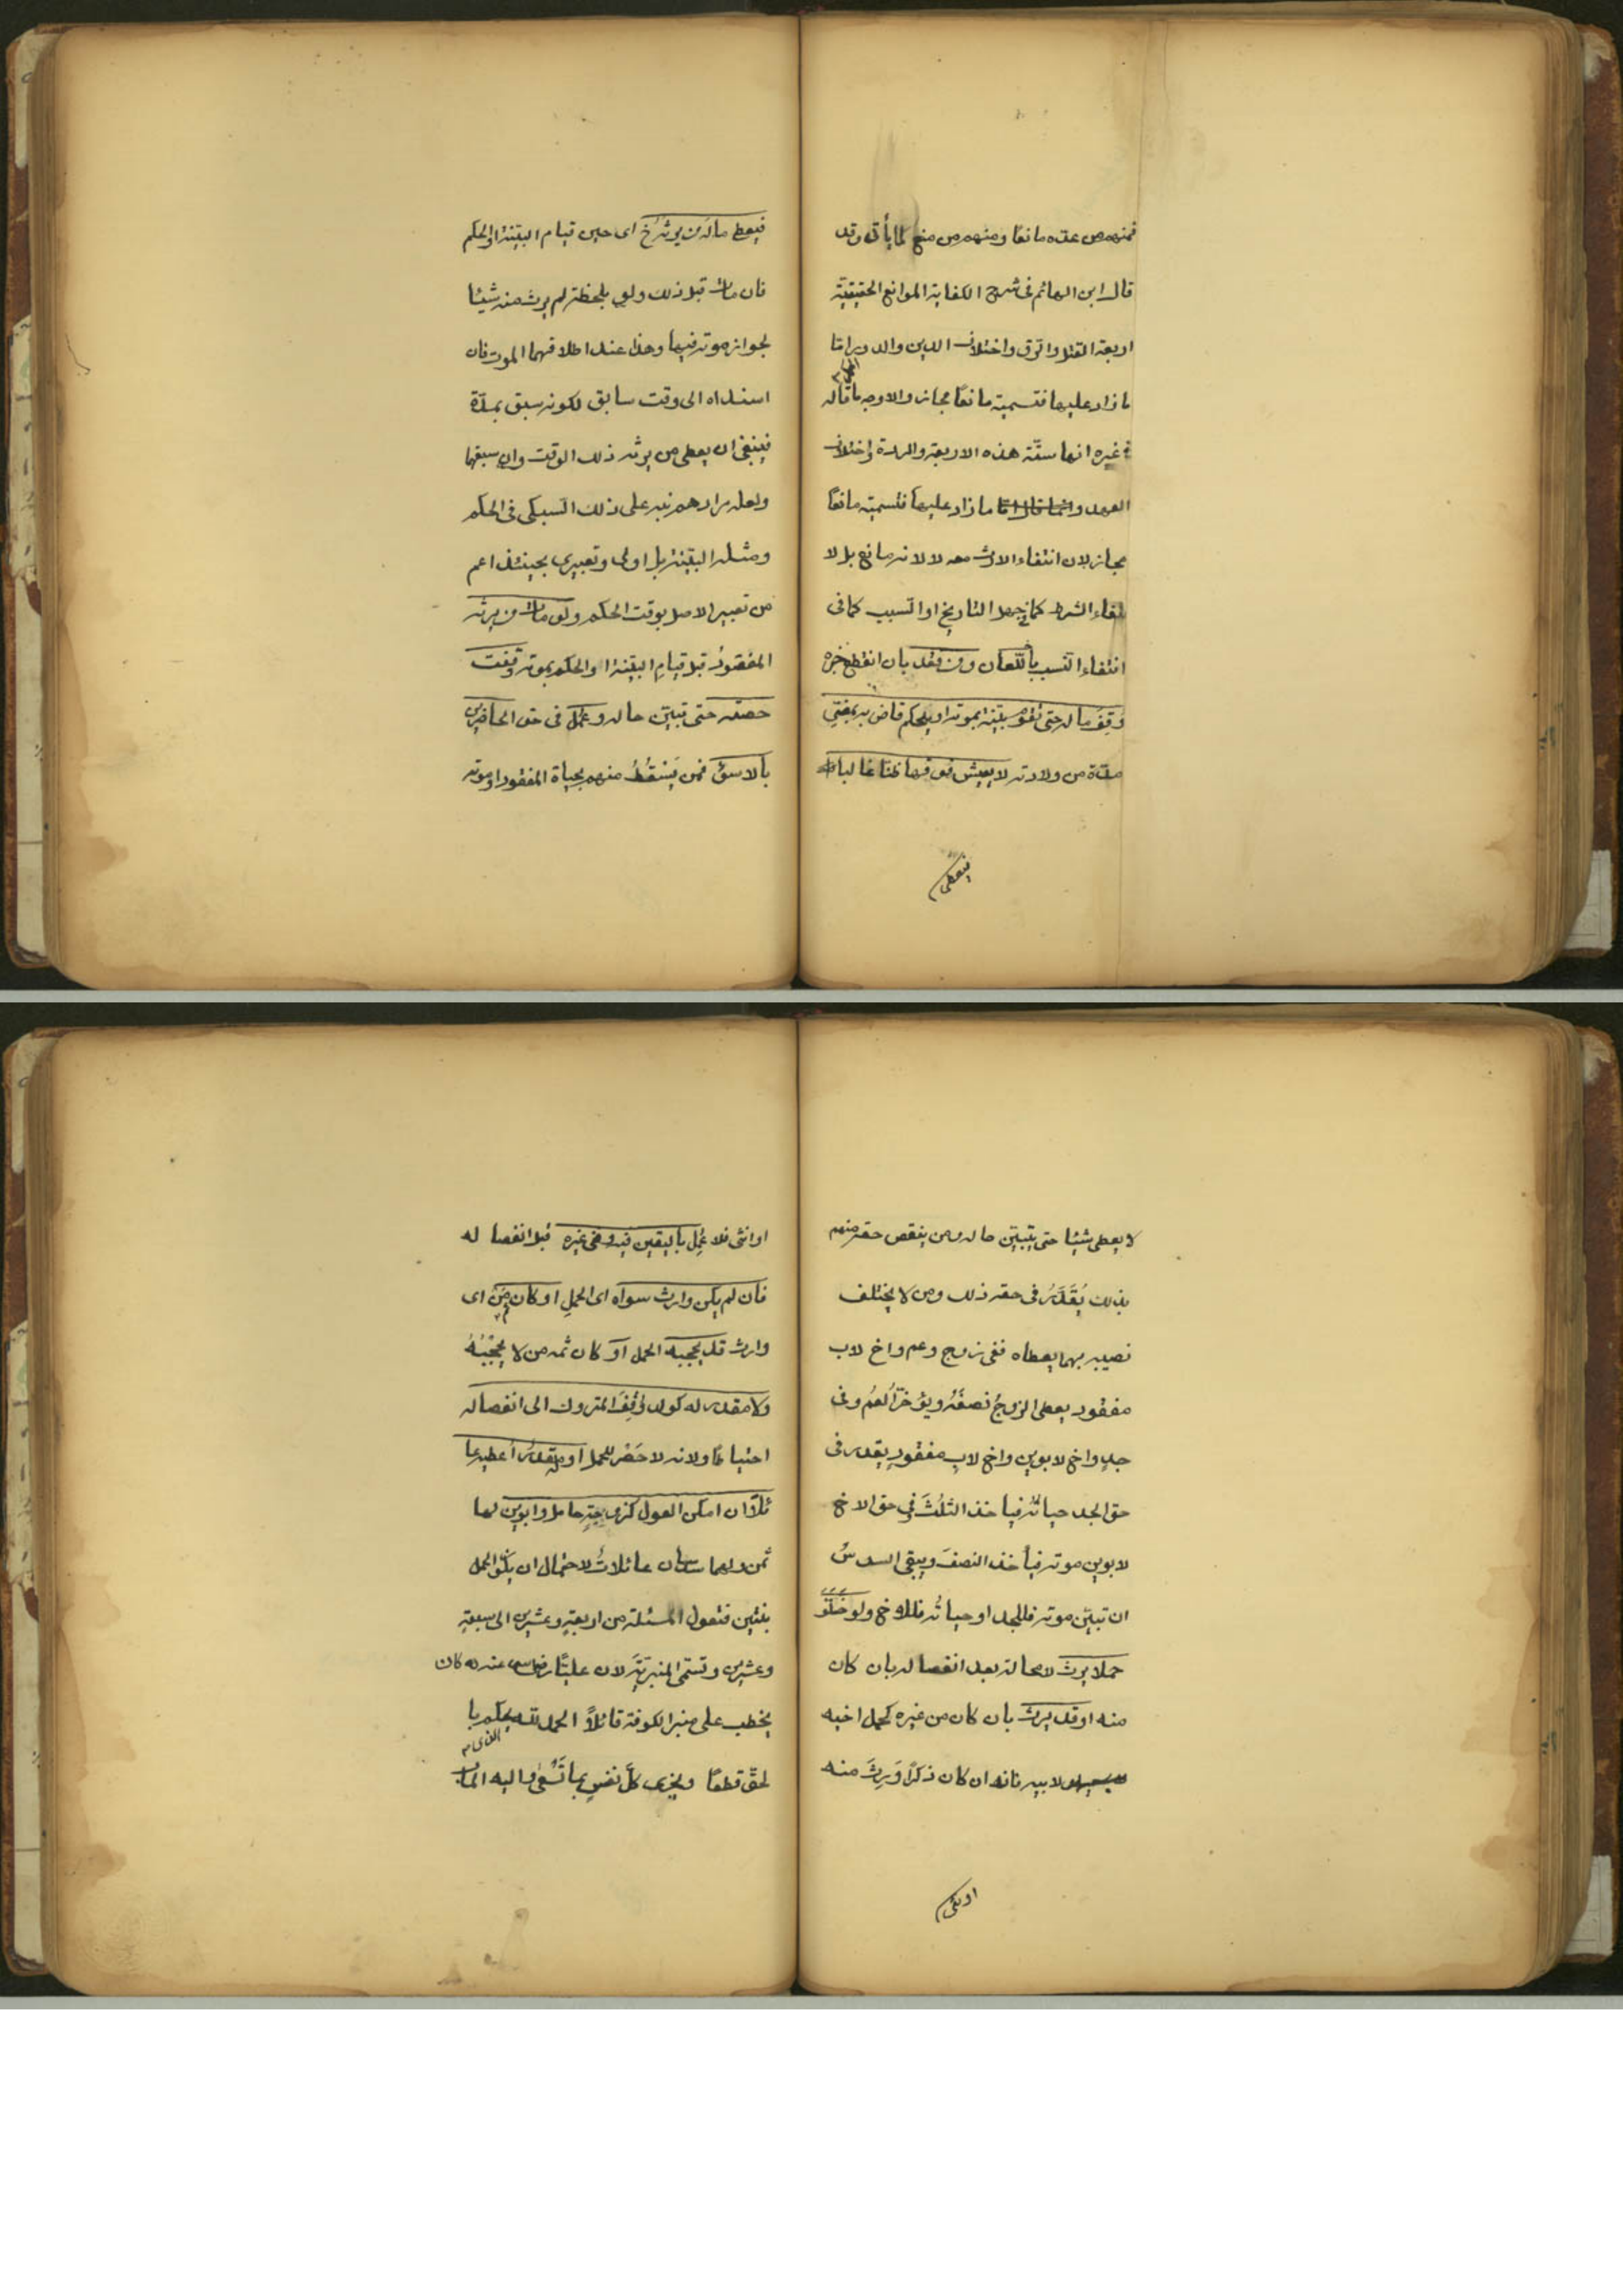 فمنهم من عده مانعًا ومنهم من منع لما يأتى وقد
قال ابن الهائم فى شرح الكفاية الموانع الحقيقية
اربعة القتل والرق واختلاف الدين والدور واما
ما زاد عليها فتسميته مانعًا مجاز والاوجه ما قاله
فى غيره انها ستّة هذه الاربعة والردة واختلاف
العهد وانما ما زاد عليها فتسميته مانعًا
مجاز لان انتفاء الارث معه لا لانه مانع بل لا
نتفاء الشرط كما فى جهل التاريخ او النسب كما فى
انتفاء النسب باللعان ومن فقد بان انقطع خبره
وُقِفَ ماله حتى تقوم بيّنة بموته او يحكم قاض به بمضيّ
مدّة من ولادته لا يعيش فوقها ظنًا غالبا
فيعطى
فيعطى ماله من يرثه ح اى حين قيام البيّنة او الحكم
فان مات قبل ذلك ولو بلحظة لم يرث منه شيئا
لجواز موته فيها وهذا عند اطلاقهما الموت فان
اسنداه الى وقت سابق لكونه سبق بمدّة
فينبغى ان يعطى من يرثه ذلك الوقت وان سبقها
ولعله مرادهم نبه على ذلك السبكى فى الحكم
ومثله البيّنة بل اولى وتعبيرى بحينئذ اعم
من تعبير الاصل بوقت الحكم ولو مات من يرثه
المفقودُ قبل قيامِ البيّنة او الحكم بموته وقفت
حصته حتى تبيّن حاله وعمل فى حق الحاضرين
بالاسوَء فمن يَسْقُطُ منهم بحياة المفقود او موته
لا يعطى شيئا حتى يتبيّن حاله ومن ينقص حقه منهم
بذلك يُقَدَّرُ فى حقه ذلك ومن لا يختلف
نصيبه بهما يعطاه ففى زوج وعم واخ لاب
مفقود يعطى الزوجُ نصفَهُ ويؤخر العمُ وفى
جدٍ واخٍ لابوين واخٍ لابٍ مفقودٍ يقدر فى
حق الجد حياتُه فيأخذ الثلثَ وفى حق الاخ
لابوين موته فيأخذ النصفَ ويبقى السدسُ
ان تبيّن موته فللجد او حياتُه فللاخ ولو خلّف
حملا يرث لا محالة بعد انفصاله بان كان
منه او قد يرث بان كان من غيره كحمل اخيه
لابيه فانه ان كان ذكرًا وَرِثَ منه
او انثى
او انثى فلا عُمِل باليقين فيه وفى غيره قبل انفصاله
فان لم يكن وارث سواه اى الحملِ او كان مَنْ اى
وارث قد يحجبه الحمل او كان ثمه من لا يحْجُبُهُ
ولا مقدر له كولد وُقِفَ المتروك الى انفصاله
احتياطًا ولانه لا حَصْر للحمل او له مقدرٌ أعطيه عا
ئلًا ان امكن العول كزوجةٍ حامل وابوين لها
ثمن ولهما سدسان عائلاتٌ لاحتمال ان يكون الحمل
بنتين فتعول المسئلة من اربعةٍ وعشرين الى سبعةٍ
وعشرين وتسمّى المنبريّةَ لان عليًّا رضى الله عنه كان
يخطب على منبر الكوفة قائلاً الحمد لله الذى يحكم با
لحقّ قطعًا ويجزى كلَّ نفسٍ بما تَسْعَى واليه المآب